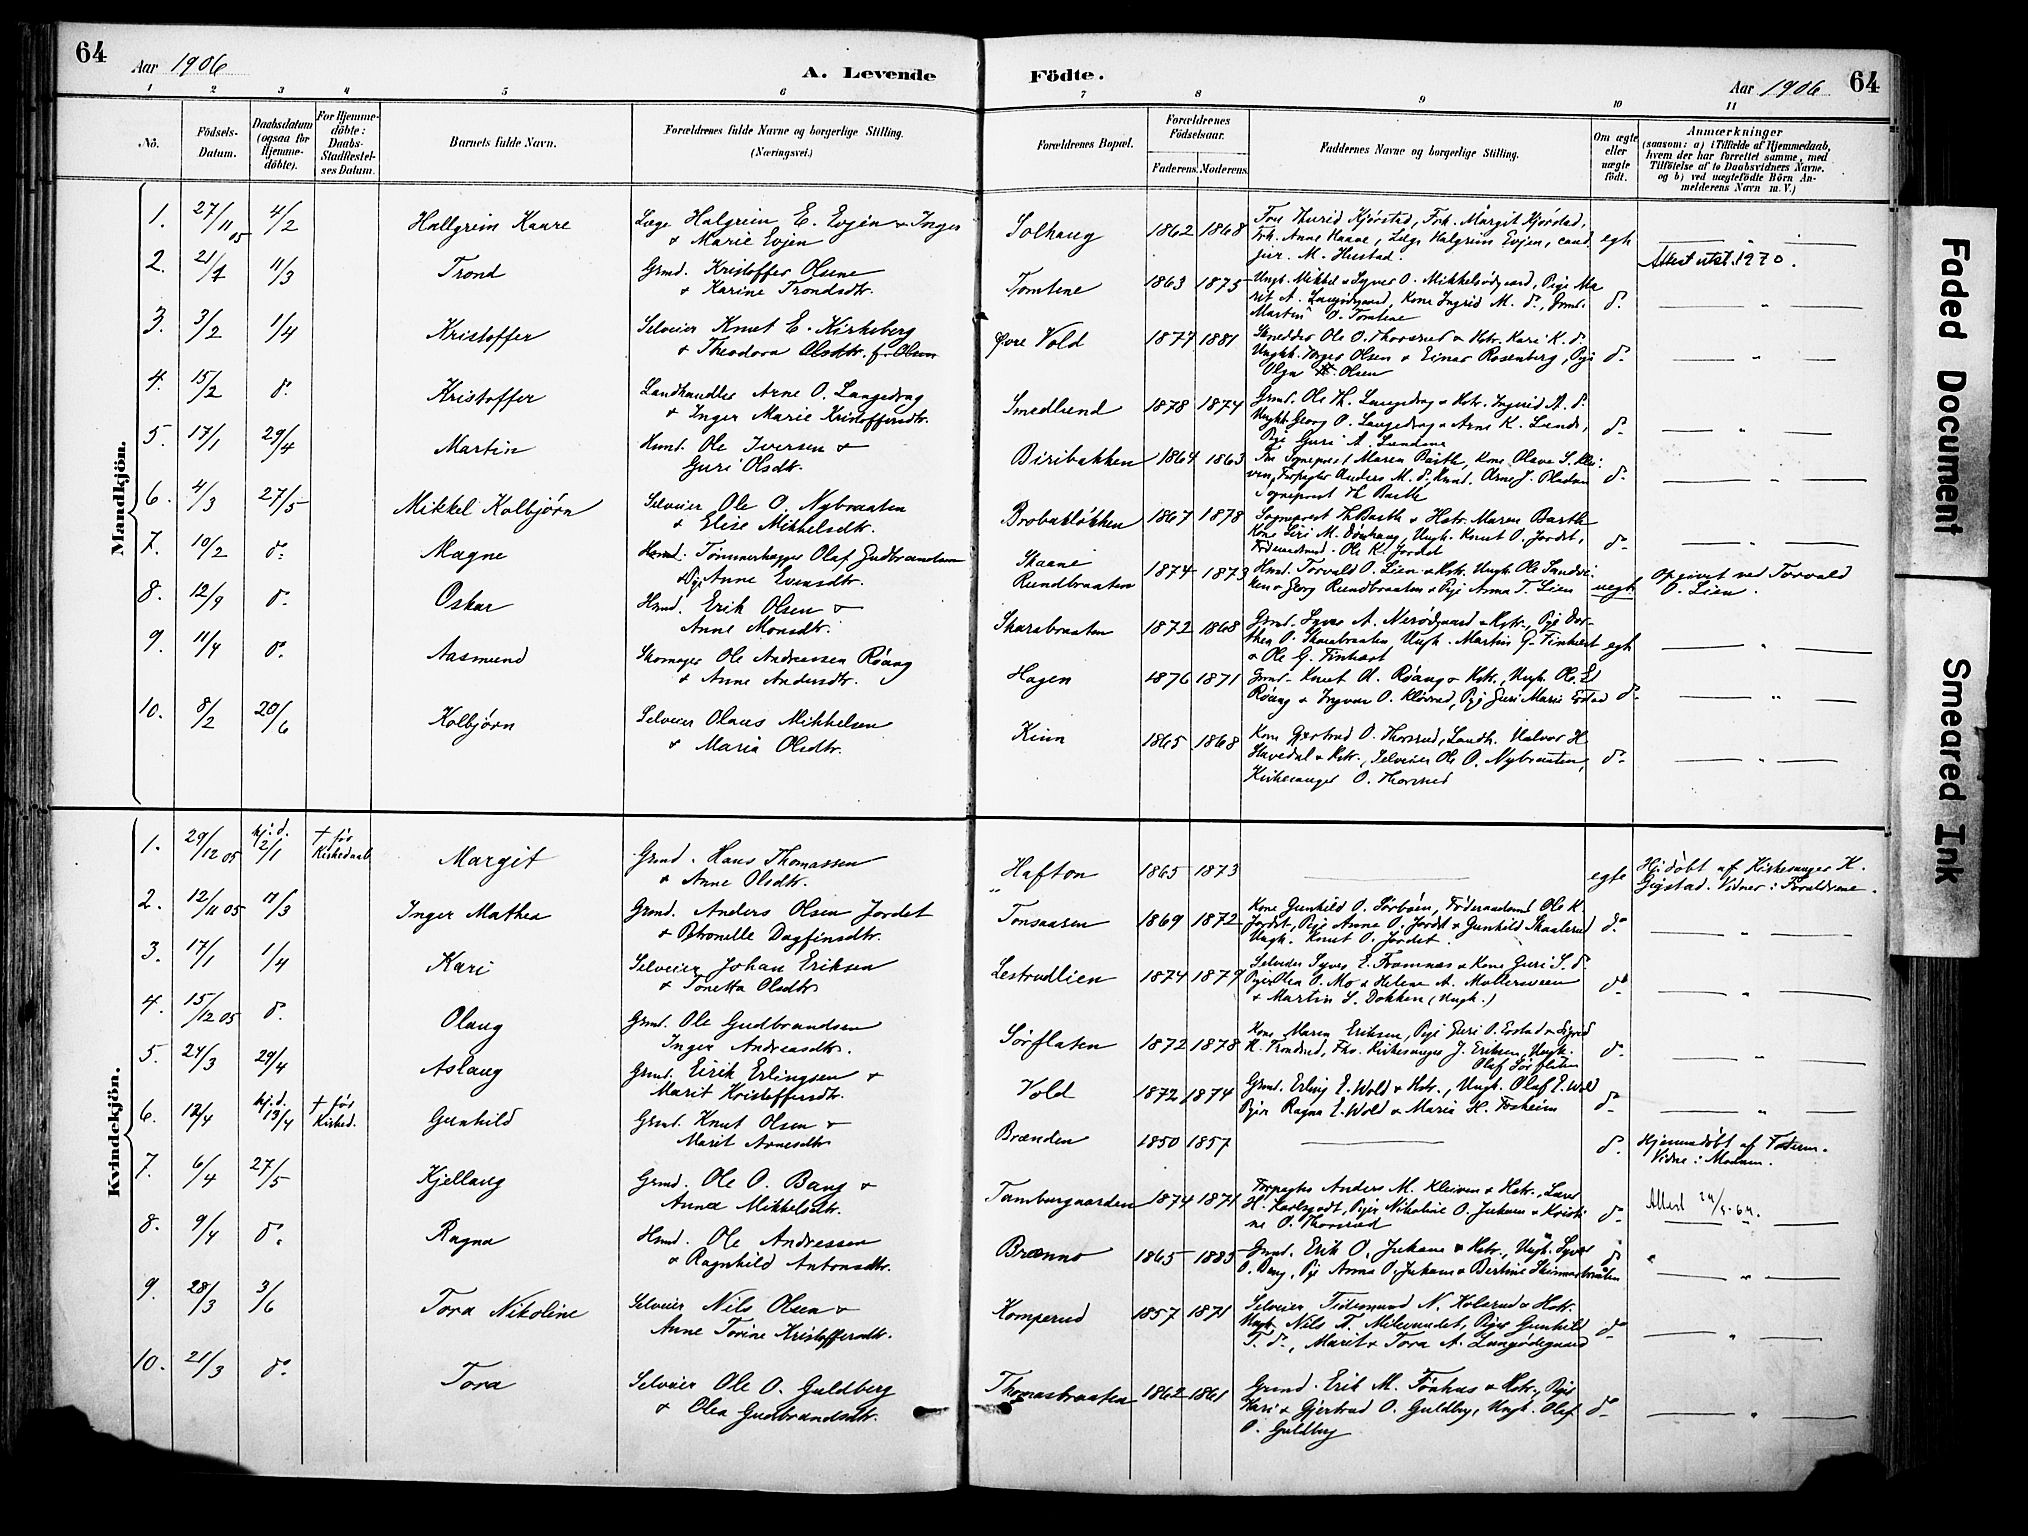 64
Aar 1906
A. Levende
Födte.
Aar 1906
64
1 2 3 4 5 6 7 8 9 10 11
No.
Födsels-Datum.
Daabsdatum (ogsaa for Hjemme-döbte).
For Hjemme-döbte: Daabs-Stadfæstel-ses Datum.
Barnets fulde Navn.
Forældrenes fulde Navne og borgerlige Stilling. (Næringsvei.)
Forældrenes Bopæl.
Forældrenes Födselsaar.
Faderens. Moderens.
Faddernes Navne og borgerlige Stilling.
Om ægte eller uægte födt.
Anmærkninger
(saasom: a) i Tilfælde af Hjemmedaab, hvem der har forrettet samme, med Tilföielse af to Daabsvidners Navne, og b) ved uægtefödte Börn Anmelderens Navn m. V.)
Mandkjön.
1. 27/11 05 4/2 Hallgrim Kaare Læge Halgrim E. Evjen & Inger
& Marie Evjen Solhaug 1862 1868 Fru Thurid Kjørstad, Frk. Margit Kjørstad,
Frk. Anne Haave, Læge Halgrim Evjen, cand.
jur. M. Hustad. egte
2. 21/1 11/3 Trond Grmd. Kristoffer Olsen
& Karine Trondsdtr. Tomtene 1863 1875 Attest utst. 1970.
Martin O. Tomtene d.
3. 3/2 1/4 Kristoffer Selveier Knut E. Kirkeberg
& Theodora Olsdtr. f. Olsen Øvre Vold 1877 1881 Skredder Ole O. Thorsrud & Hstr. Kari K. d.
Ungk. Torger Olsen & Einar Rosenberg, Pige
Olga Olsen d.
4. 15/2 d. Kristoffer Landhandler Arne O. Langedrag
& Inger Marie Kristoffersdtr. Smedlund 1878 1874 Grmd. Ole Th. Langedrag & Hstr. Ingrid A. d.
Ungk. Georg O. Langedrag & Arne K. Lunde,
Pige Guri A. Lundene d.
5. 17/1 29/4 Martin Husmd. Ole Iversen &
Guri Olsdtr. Biribakken 1864 1863 Fru Sogneprest Maren Barth, Kone Olava S. Kleiven,
Forpagter Anders M. d.
Sogneprest Th. Barth d.
6. 4/3 27/5 Mikkel Kolbjørn Selveier Ole O. Nybraaten
& Elise Mikkelsdtr. Brobakløkken 1867 1878 Sogneprest Th. Barth & Hstr. Maren Barth
Kone Siri M. Ungk. Knut O. Jordet,
Føderaadsmd. Ole K. Jordet d.
7. 10/2 d. Magne Husmd. Tømmerhugger Olaf Gudbrandsen
& Pige Anne Evensdtr. Skaane
Rundbraaten 1874 1873 Husmd. Torvald O. Lien & Hstr. Ungk. Ole
Georg Rundbraaten & Pige Anna T. Lien uegte Opgivet ved Torvald
O. Lien.
8. 12/9 d. Oskar Husmd. Erik Olsen &
Anne Monsdtr. Skarabraaten 1872 1868 Grmd. Syver A. Nerødegaard & Hstr., Pige Dorthea
O. Skarabraaten, Ungk. Martin G. Finhert
& Ole G. Finhert egte
9. 11/4 d. Aasmund Skomager Ole Andreassen Røang
& Anne Andersdtr. Hagen 1876 1871 Grmd. Knut O. Røang & Hstr., Ungk. Ole E.
Røang & Ingvar O. Pige Guri Marie d.
10. 8/2 20/6 Kolbjørn Selveier Olaus Mikkelsen
& Maria Olsdtr. Kinn 1865 1868 Kone Gjertrud O. Thorsrud, Landh. Halvor H.
Havedal & Hstr., Selveier Ole O. Nybraaten,
Kirkesanger O. Thorsrud d.
Kvindekjön.
1. 29/12 05 hj.d. 2/1 † før Kirkedaab Margit Grmd. Hans Thomassen
& Anne Olsdtr. Hafton 1865 1873 egte Hj.døbt af Kirkesanger K.
Gigstad. Vidner: Forældrene.
2. 12/11 05 11/3 Inger Mathea Grmd. Anders Olsen Jordet
& Petronelle Dagfinsdtr. Tonsaasen 1869 1872 Kone Gunhild O. Sørboen, Føderaadsmd Ole K.
Jordet, Pige Anne O. Jordet & Gunhild Skaalerud
Ungk. Knut O. Jordet. d.
3. 17/1 1/4 Kari Selveier Johan Eriksen
& Tonetta Olsdtr Lestrudlien 1874 1879 Selveier Syver E. Framnæs & Kone Guri S. d.
Piger Olea O. Mo & Helene A. Møllersveen
& Martin S. Dokken (Ungk.) d.
4. 15/12 05 d. Olaug Grmd. Ole Gudbrandsen
Inger Andreasdtr. Sørflaten 1872 1878 Kone Maren Eriksen, Pige Guri O. & Sigrid
Kirkesanger J. Eriksen, Ungk.
Olaf Sørflaten d.
5. 24/3 29/4 Aslaug Grmd. Eirik Erlingsen &
Marit Kristoffersdtr. Vold 1872 1874 Grmd. Erling E. Wold & Hstr., Ungk. Olaf E. Wold
Piger Ragna E. Wold & Maria H. Fosheim d.
6. 12/4 hj.d. 13/4 † før Kirked. Gunhild Grmd. Knut Olsen &
Marit Arnesdtr Brænden 1850 1857 d. Hjemmedøbt af Faderen.
Vidne: Moderen.
7. 6/4 27/5 Kjellaug Grmd. Ole O. Bang &
Anne Mikkelsdtr. Tamburgaarden 1874 1871 Forpagter Anders M. Kleiven & Hstr., Lærer
H. Karlsgodt, Piger Nikoline O. Juhans & Kristine
O. Thorsrud d. Attest 24/5-64.
8. 9/4 d. Ragna Husmd. Ole Andressen
& Ragnhild Antonsdtr. Brænno 1865 1885 Grmd. Erik O. Juhans & Hstr., Ungk. Syver
O. Bang, Pige Anna O. Juhans & Bertine d.
9. 28/3 3/6 Tora Nikoline Selveier Nils Olsen &
Anne Torine Kristoffersdtr. Komperud 1857 1871 Selveier Tidemand N. Kolsrud & Hstr.
Ungk. Nils T. Piger Gunhild
T. d., Marit & Tora A. Langødegaard d.
10. 21/3 d. Tora Selveier Ole O. Guldberg
& Olea Gudbrandsdtr. Thomasbraaten 1862 1861 Grmd. Erik M. Fönhus & Hstr., Piger
Kari & Gjertrud O. Guldberg, Ungk. Olaf
O. Guldberg d.
Faded Document
Smeared Ink